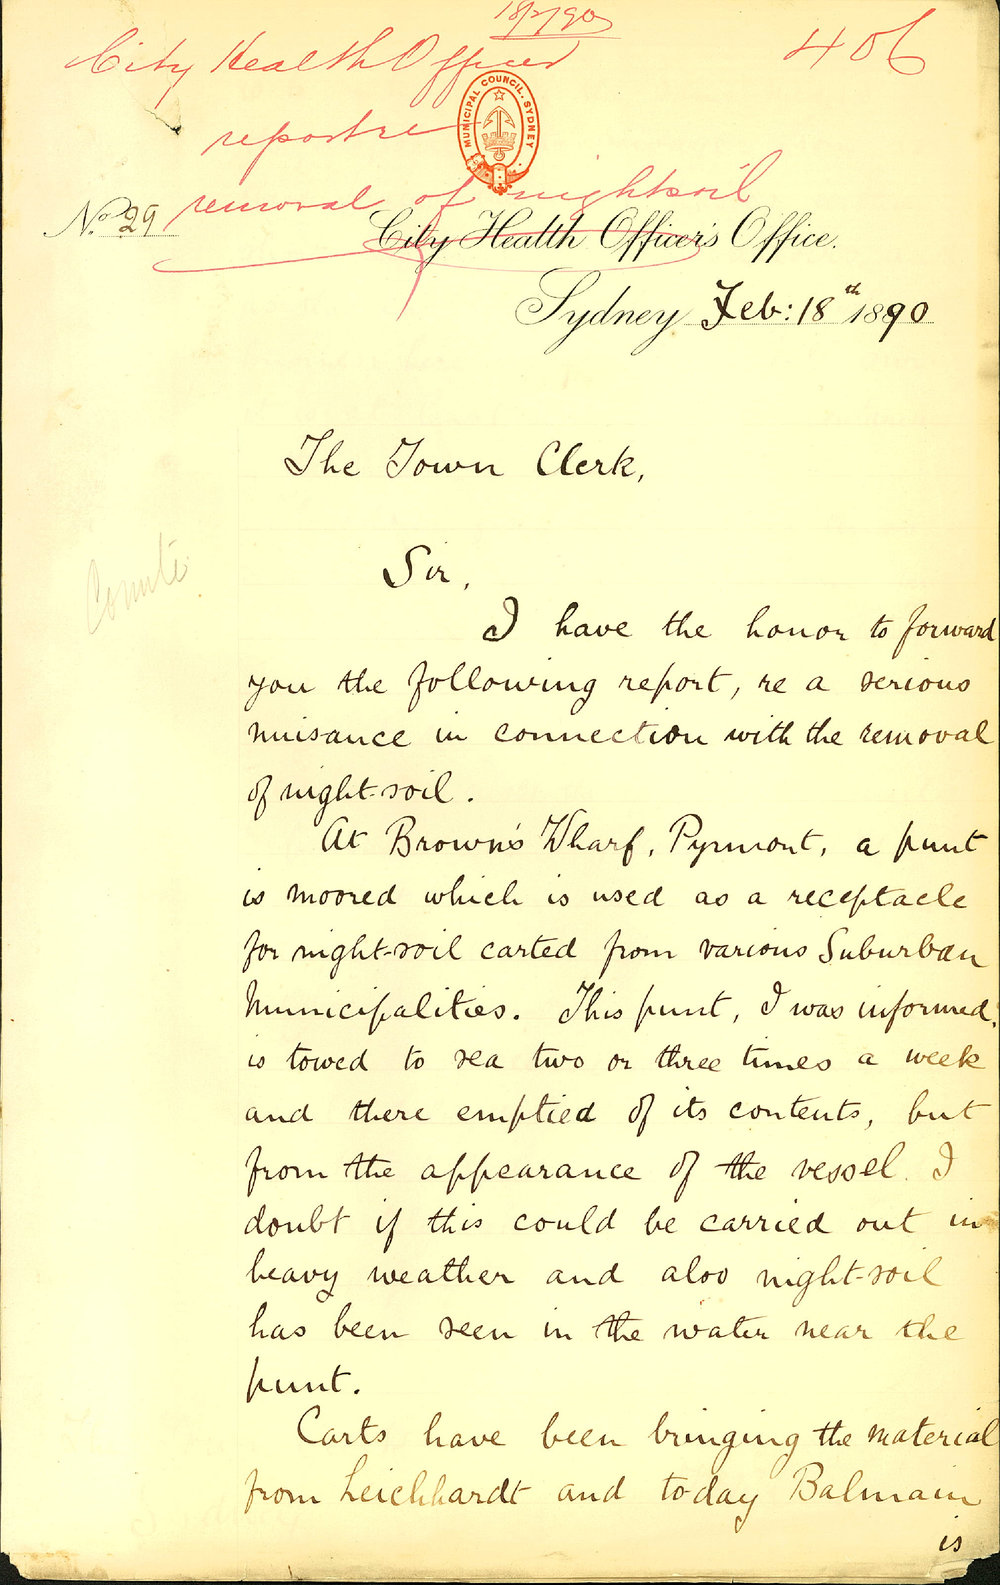 18/2/90
City Health Officer
406
report re
MUNICIPAL COUNCIL, SYDNEY
removal of nightsoil
No. 29
City Health Officer's Office.
Sydney Feb: 18th 1890
The Town Clerk,
Comite
Sir,
I have the honor to forward
you the following report, re a serious
nuisance in connection with the removal
of night-soil.
At Brown's Wharf, Pyrmont, a punt
is moored which is used as a receptacle
for night-soil carted from various Suburban
Municipalities. This punt, I was informed,
is towed to sea two or three times a week
and there emptied of its contents, but
from the appearance of the vessel I
doubt if this could be carried out in
heavy weather and also night-soil
has been seen in the water near the
punt.
Carts have been bringing the material
from Leichhardt and today Balmain
is